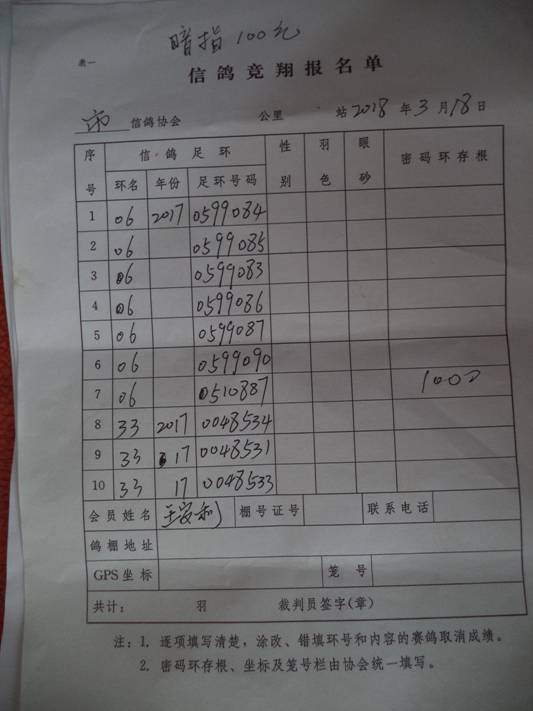 暗指100元
表一
信鸽竞翔报名单
市 信鸽协会 公里 站 2018 年 3 月 18 日
序号 信·鸽 足 环 性别 羽色 眼砂 密码环存根
环名 年份 足环号码
1 06 2017 0599084
2 06 0599085
3 06 0599083
4 06 0599086
5 06 0599087
6 06 0599090
7 06 0510887 1000
8 33 2017 0048534
9 33 17 0048531
10 33 17 0048533
会员姓名 王安利 棚号证号 联系电话
鸽棚地址
GPS坐标 笼号
共计: 羽 裁判员签字(章)
注:1. 逐项填写清楚,涂改、错填环号和内容的赛鸽取消成绩。
2. 密码环存根、坐标及笼号栏由协会统一填写。